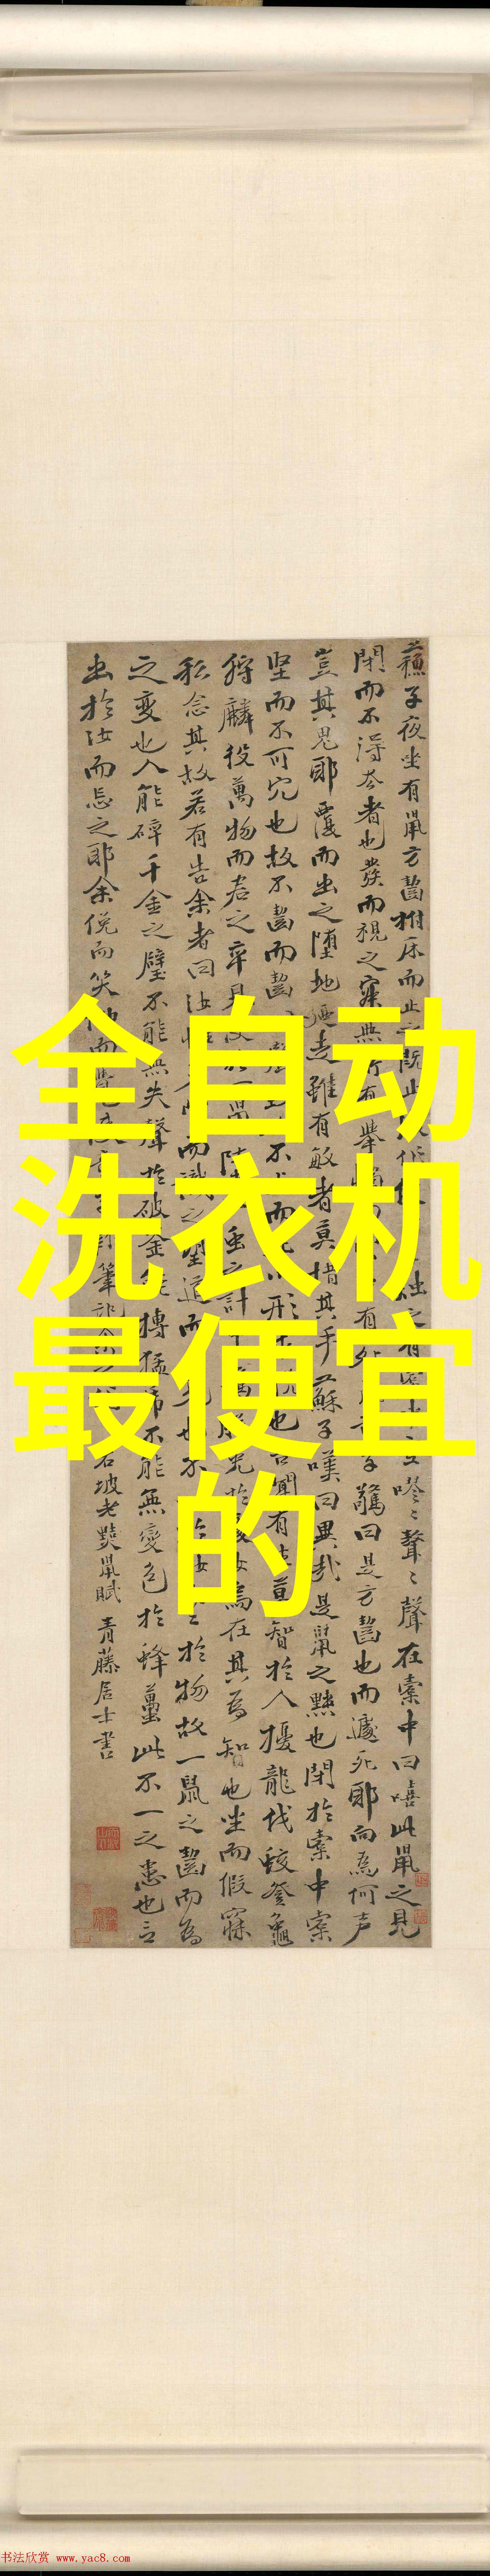 全自动
洗衣机
最便宜
的
蘇子夜坐有鼠方齧拊床而止之既止 燭之有 嘐〻聱〻聲在橐中曰嘻此鼠之見
閉而不得去者也發而視之寂無所有舉 有死 驚曰是方齧也而遽死耶向為何声
豈其鬼耶覆而出之墮地迺走雖有敏者莫措其手蘇子嘆曰異哉是鼠之黠也閉於橐中橐
堅而不可穴也故不齧而齧 不 而 形 也吾聞有 莫智於人擾龍伐蛟登龜
狩麟役萬物而君之卒見使於一鼠 蟲之計 脫兔於 女烏在其為智也坐而假寐
私念其故若有告余者曰汝惟 而識之望道而 也不 於汝 於物故一鼠之齧而為
之變也人能碎千金之璧不能無失聲於破釜能搏猛虎不能無變色於蜂蠆此不一之患也言
出於汝而忘之耶余俛而笑仰而覺 筆記余 右坡老黠鼠賦 青藤居士書
书法欣赏 www.yac8.com